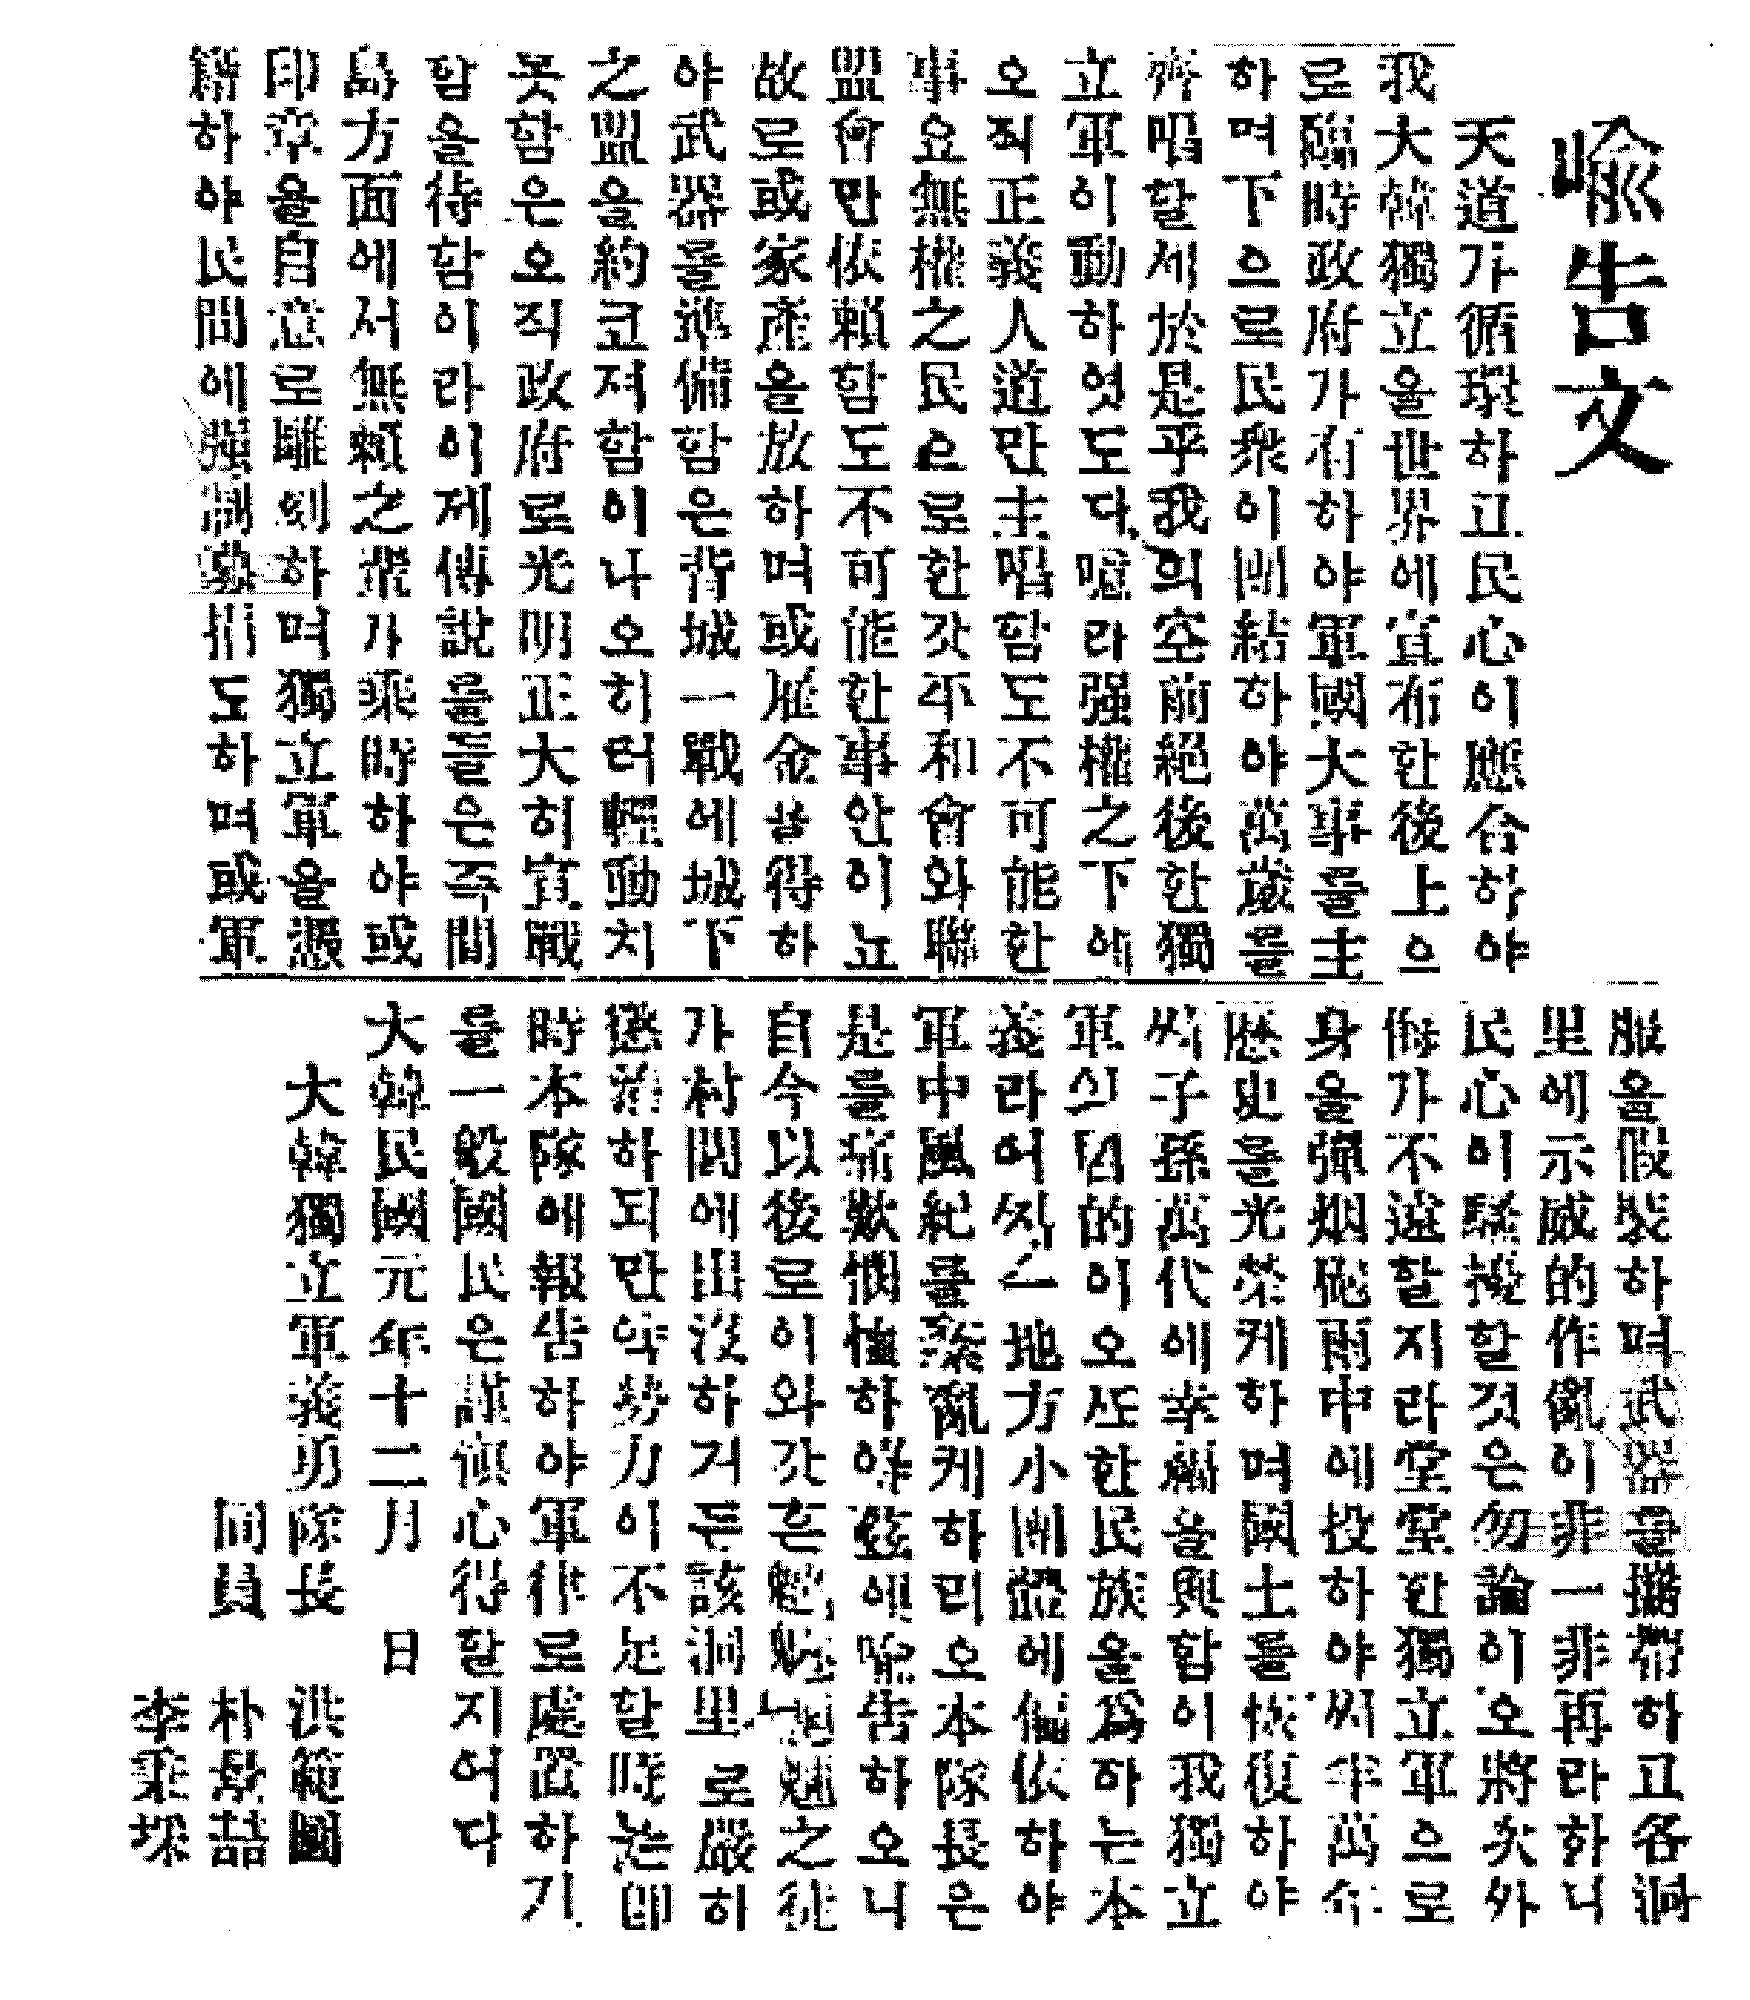 喩告文
天道가循環하고民心이應合하야
我大韓獨立을世界에宣布한後上으
로臨時政府가有하야軍國大事를主
하며下으로民衆이團結하야萬歲를
齊唱할세於是乎我의空前絶後한獨
立軍이動하엿도다噫라强權之下에
오직正義人道만主唱함도不可能한
事요無權之民으로한갓平和會와聯
盟會만依賴함도不可能한事안이뇨
故로或家産을放하며或雇金을得하
야武器를準備함은背城一戰에城下
之盟을約코져함이나오히려輕動치
못함은오직政府로光明正大히宣戰
함을待함이라이제傳說을들은즉間
島方面에서無賴之輩가乘時하야或
印章을自意로雕刻하며獨立軍을憑
籍하야民間에强制募捐도하며或軍
服을假裝하며武器를携帶하고各洞
里에示威的作亂이非一非再라하니
民心이騷擾할것은勿論이오將次外
侮가不遠할지라堂堂한獨立軍으로
身을彈烟砲雨中에投하야써半萬年
歷史를光榮케하며國土를恢復하야
써子孫萬代에幸福을與함이我獨立
軍의目的이오또한民族을爲하는本
義라어찌一地方小團體에偏依하야
軍中風紀를紊亂케하리오本隊長은
是를痛歎憫恤하야玆에喩告하오니
自今以後로이와갓흔魑魅魍魎之徒
가村閭에出沒하거든該洞里로嚴히
懲治하되만약勞力이不足할時는卽
時本隊에報告하야軍律로處置하기
를一般國民은謹愼心得할지어다
大韓民國元年十二月 日
大韓獨立軍義勇隊長 洪範圖
同員 朴景喆
李秉埰